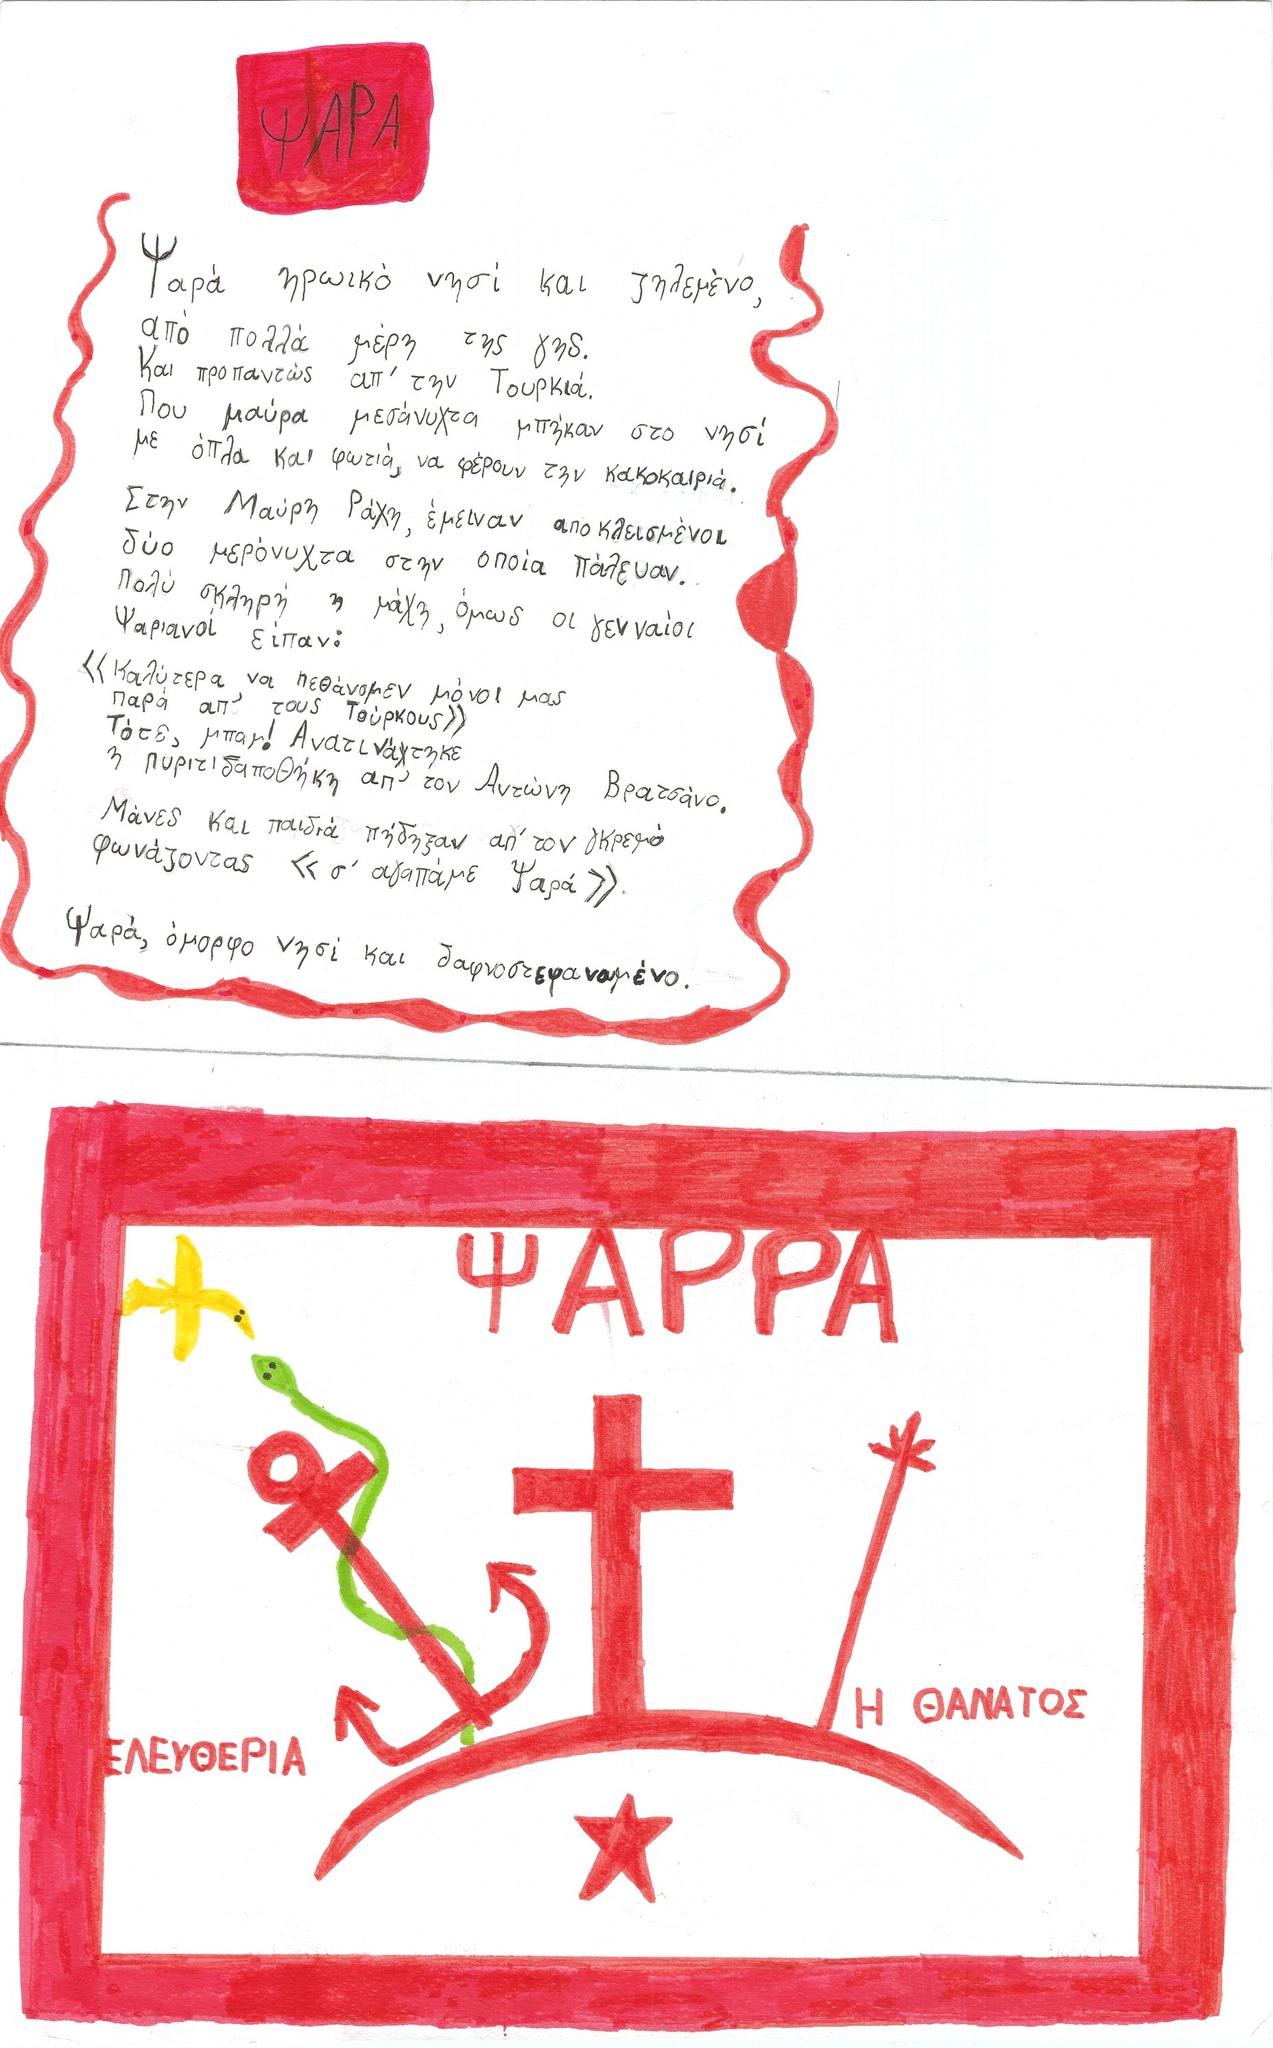 ΨΑΡΑ
Ψαρά ηρωικό νησί και ζηλεμένο,
από πολλά μέρη της γης.
Και προπαντώς απ' την Τουρκιά.
Που μαύρα μεσάνυχτα μπήκαν στο νησί
με όπλα και φωτιά, να φέρουν την κακοκαιριά.
Στην Μαύρη Ράχη, έμειναν αποκλεισμένοι
δύο μερόνυχτα στην οποία πάλευαν.
Πολύ σκληρή η μάχη, όμως οι γενναίοι
Ψαριανοί είπαν:
«Καλύτερα να πεθάνομεν μόνοι μας
παρά απ' τους Τούρκους»
Τότε, μπαμ! Ανατινάχτηκε
η πυριτιδαποθήκη απ' τον Αντώνη Βρατσάνο.
Μάνες και παιδιά πήδηξαν απ' τον γκρεμό
φωνάζοντας «σ' αγαπάμε Ψαρά».
Ψαρά, όμορφο νησί και δαφνοστεφανωμένο.
ΨΑΡΡΑ
Η ΘΑΝΑΤΟΣ
ΕΛΕΥΘΕΡΙΑ